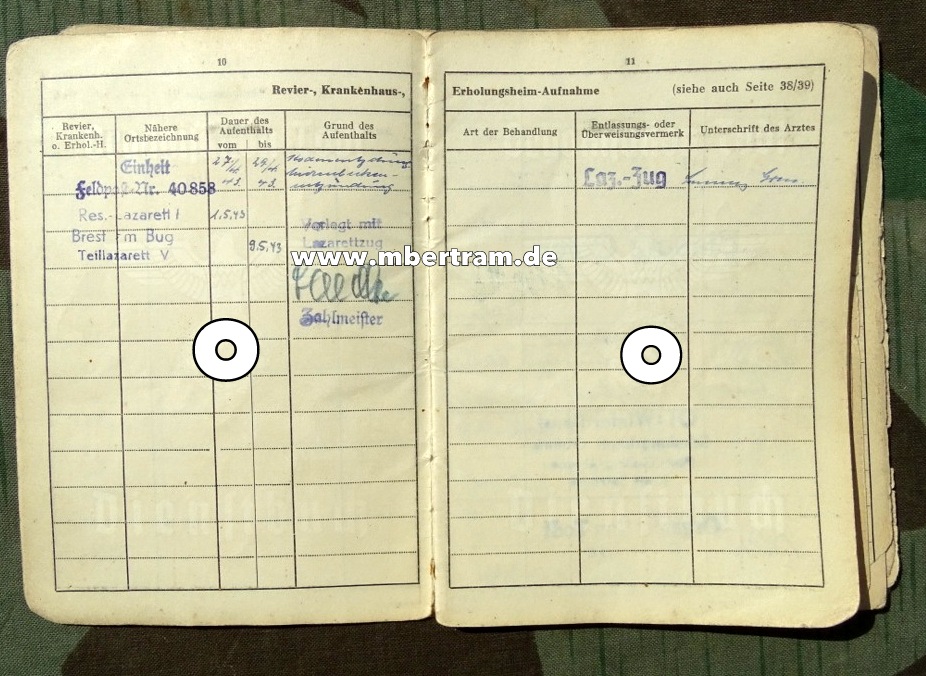 10
Revier-, Krankenhaus-,
Revier,
Krankenh.
o. Erhol.-H.
Nähere
Ortsbezeichnung
Dauer des
Aufenthalts
vom
bis
Grund des
Aufenthalts
Einheit
Feldpost-Nr. 40858
27/4. 43.
29/4. 43.
Res.-Lazarett I
Brest am Bug
Teillazarett V
1.5.43
9.5.43
Verlegt mit
Lazarettzug
Zahlmeister
11
Erholungsheim-Aufnahme
(siehe auch Seite 38/39)
Art der Behandlung
Entlassungs- oder
Überweisungsvermerk
Unterschrift des Arztes
Laz.-Zug
www.mbertram.de